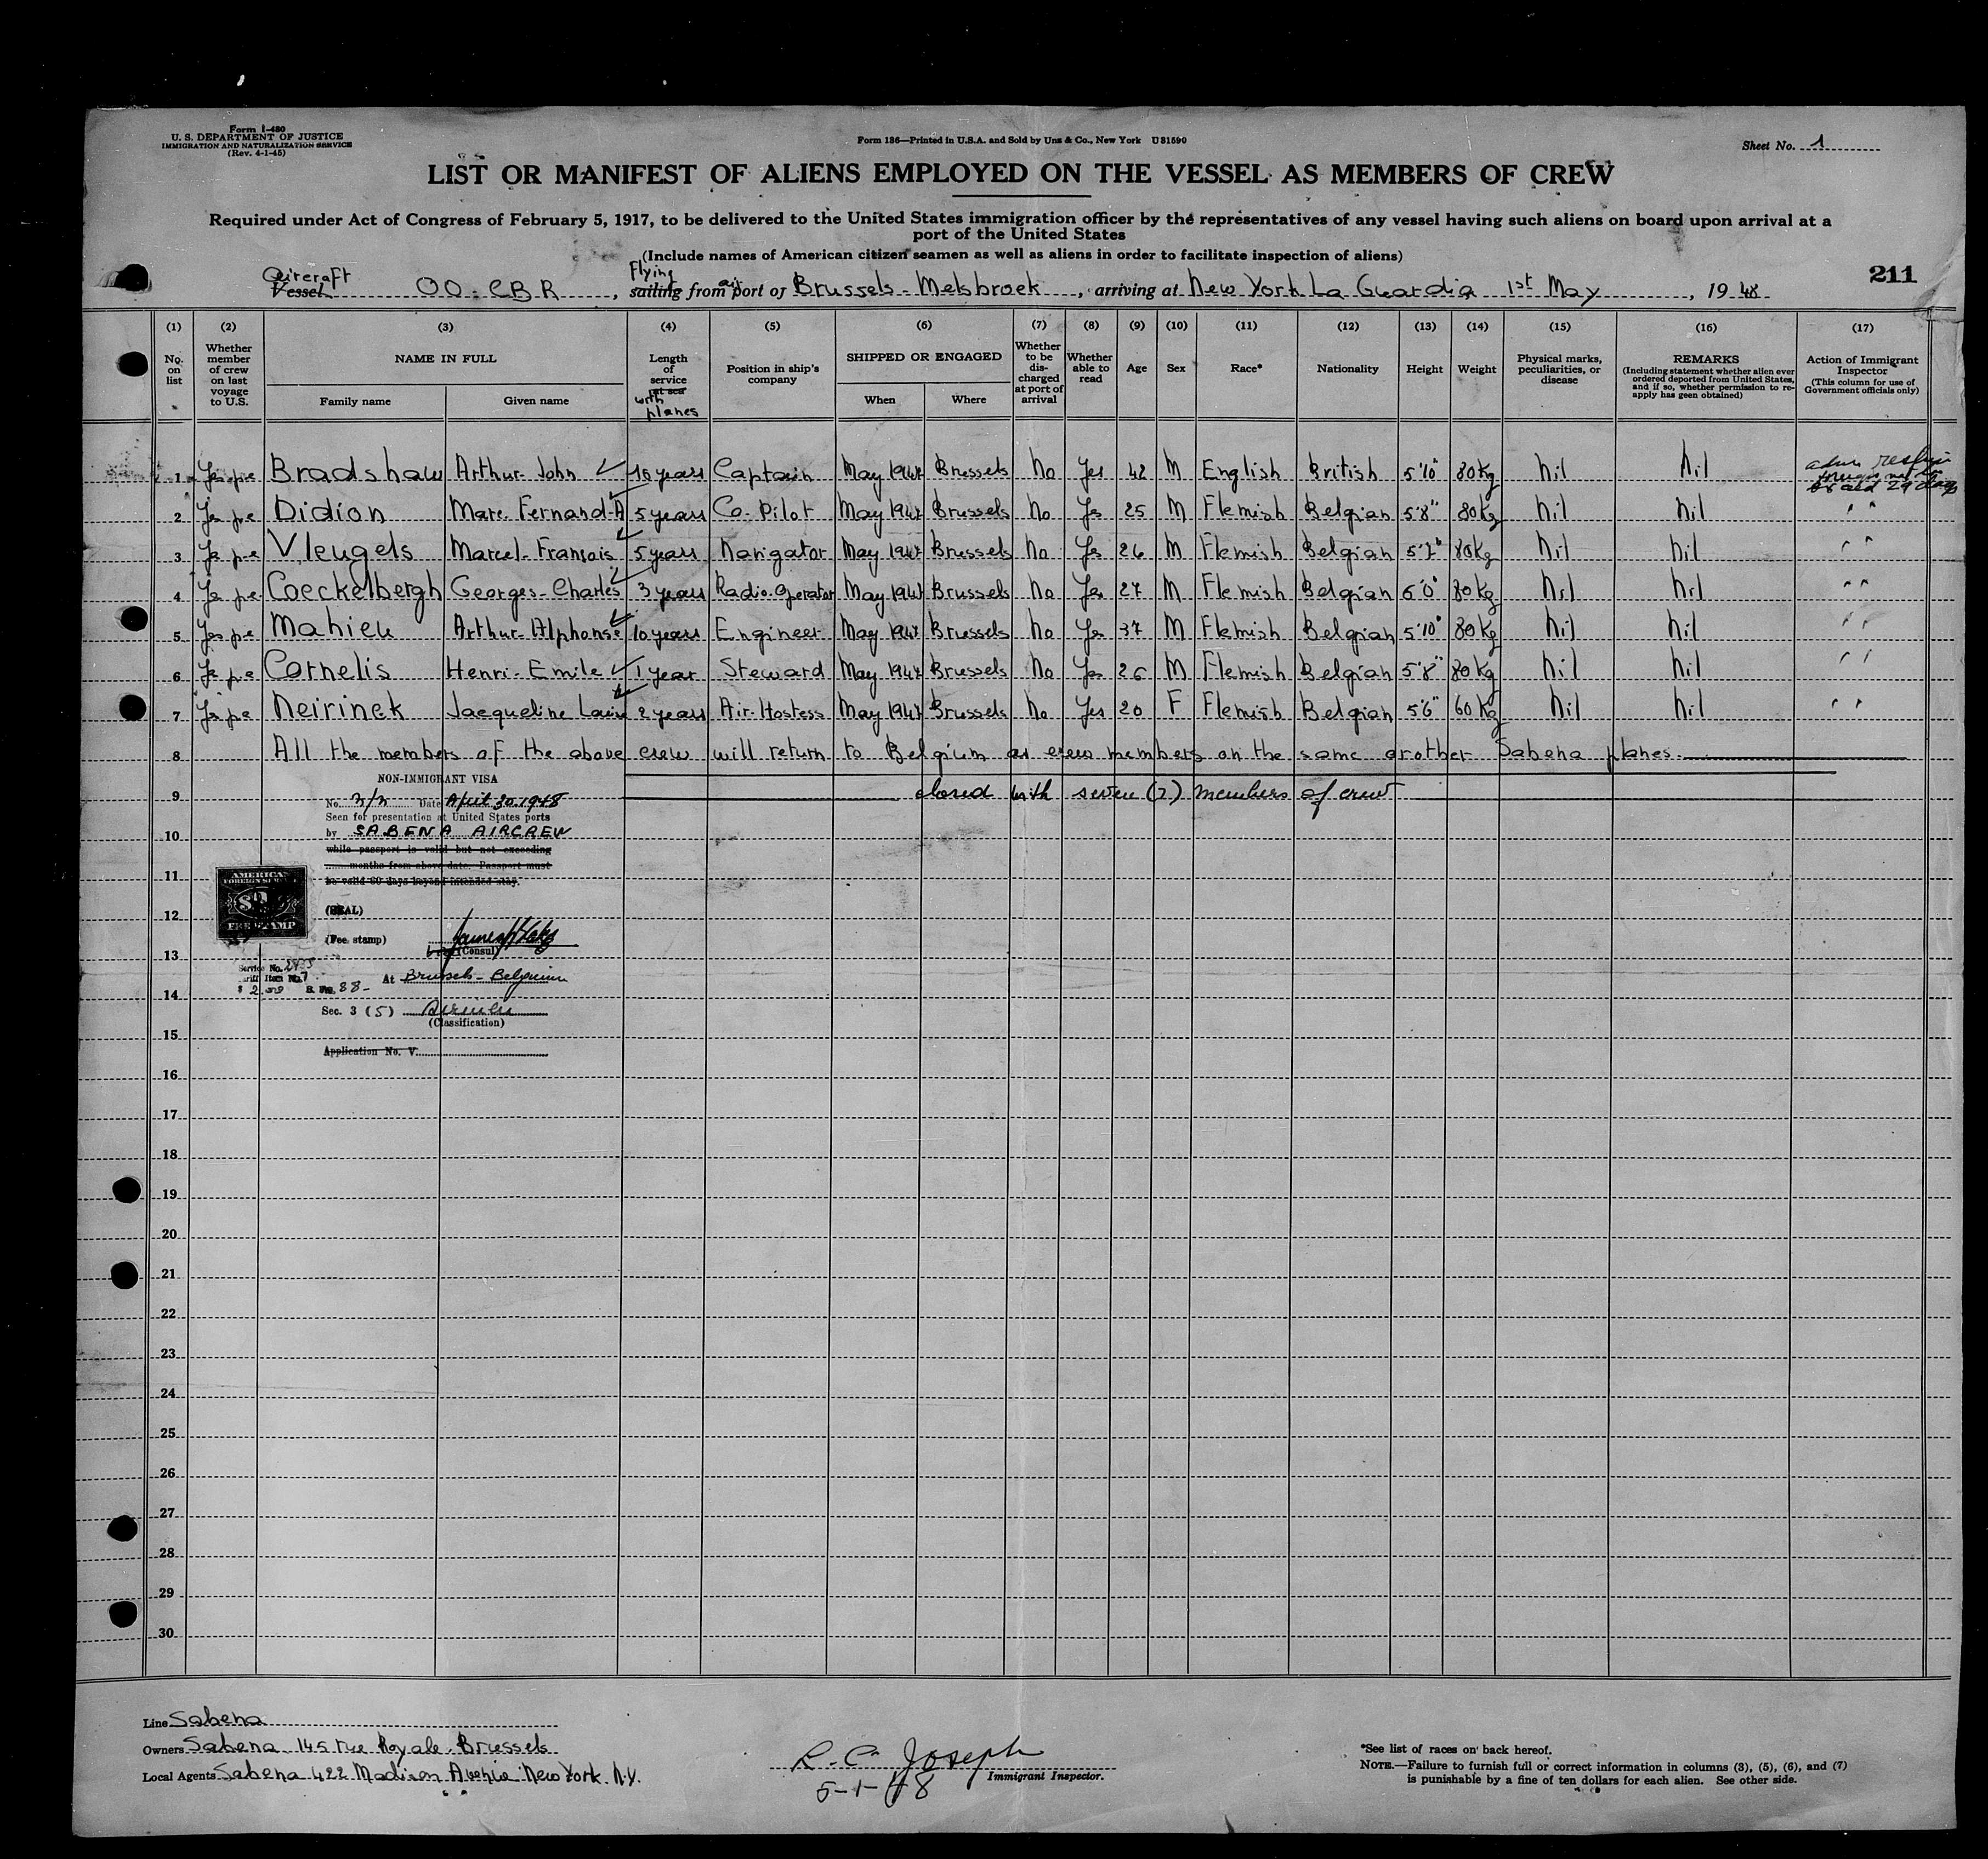 Form I-480
U. S. DEPARTMENT OF JUSTICE
IMMIGRATION AND NATURALIZATION SERVICE
(Rev. 4-1-45)
Form 186—Printed in U.S.A. and Sold by Unz & Co., New York U 81590
Sheet No. 1
LIST OR MANIFEST OF ALIENS EMPLOYED ON THE VESSEL AS MEMBERS OF CREW
Required under Act of Congress of February 5, 1917, to be delivered to the United States immigration officer by the representatives of any vessel having such aliens on board upon arrival at a
port of the United States
(Include names of American citizen seamen as well as aliens in order to facilitate inspection of aliens)
Aircraft Flying
Vessel OO-CBR, sailing from air port of Brussels-Melsbroek, arriving at New York La Guardia 1st May, 1948
211
(1) (2) (3) (4) (5) (6) (7) (8) (9) (10) (11) (12) (13) (14) (15) (16) (17)
No. on list
Whether member of crew on last voyage to U.S.
NAME IN FULL
Family name Given name
Length of service at sea with planes
Position in ship's company
SHIPPED OR ENGAGED
When Where
Whether to be discharged at port of arrival
Whether able to read
Age Sex Race* Nationality Height Weight
Physical marks, peculiarities, or disease
REMARKS
(Including statement whether alien ever ordered deported from United States, and if so, whether permission to re-apply has geen obtained)
Action of Immigrant Inspector
(This column for use of Government officials only)
1 Bradshaw Arthur-John Captain May 194 Brussels No Yes 42 M English British 5'10" 80 Kg Nil Nil
2 Didion Marc Fernand-A 5 years Co-Pilot May 194 Brussels No Yes 25 M Flemish Belgian 5'8" 80 Kg Nil Nil " "
3 Vleugels Marcel-François 5 years Navigator May 194 Brussels No Yes 26 M Flemish Belgian 5'7" 80 Kg Nil Nil " "
4 Coeckelbergh Georges-Charles 3 years Radio-Operator May 194 Brussels No Yes 27 M Flemish Belgian 80 Kg Nil Nil " "
5 Mahieu Arthur-Alphonse 10 years Engineer May 194 Brussels No Yes 37 M Flemish Belgian 5'10" 80 Kg Nil Nil " "
6 Cornelis Henri-Emile 1 year Steward May 194 Brussels No Yes 26 M Flemish Belgian 5'8" 80 Kg Nil Nil " "
7 Neirinek Jacqueline 2 years Air-Hostess May 194 Brussels No Yes 20 F Flemish Belgian 5'6" 60 Kg Nil Nil " "
8 All the members of the above crew will return to Belgium as crew members on the same or other Sabena planes.
9 closed with seven (7) members of crew
NON-IMMIGRANT VISA
No. Date April 30. 1948
Seen for presentation at United States ports
by SABENA AIRCREW
while passport is valid but not exceeding
months from above date. Passport must
be valid 60 days beyond intended stay.
AMERICAN
FOREIGN SERVICE
FEE STAMP
(SEAL)
(Fee stamp)
(Consul)
Service No.
Tariff Item No. 7
At Brussels-Belgium
Sec. 3 (5)
(Classification)
Application No. V
10
11
12
13
14
15
16
17
18
19
20
21
22
23
24
25
26
27
28
29
30
Line Sabena
Owners Sabena 145 rue Royale. Brussels
Local Agents Sabena 422 Madison Avenue New York. N.Y.
R. C. Joseph
Immigrant Inspector.
5-1-48
*See list of races on back hereof.
NOTE.—Failure to furnish full or correct information in columns (3), (5), (6), and (7)
is punishable by a fine of ten dollars for each alien. See other side.